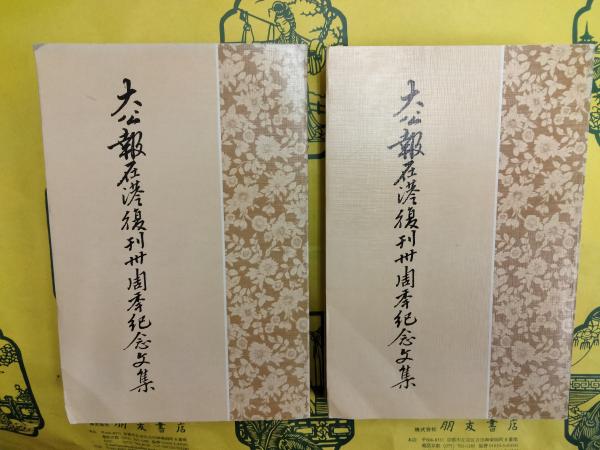 大公報在港復刊卅周年紀念文集
大公報在港復刊卅周年紀念文集
株式会社 朋友書店
株式会社 朋友書店